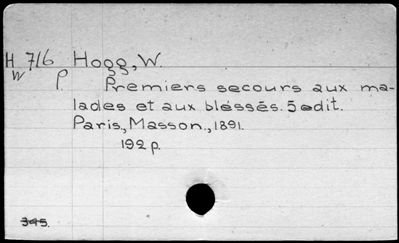 H 716 Hogg, W.
W p. Premiers secours aux ma-
lades et aux bléssés. 5 edit.
Paris, Masson, 1891.
192 p.
345.